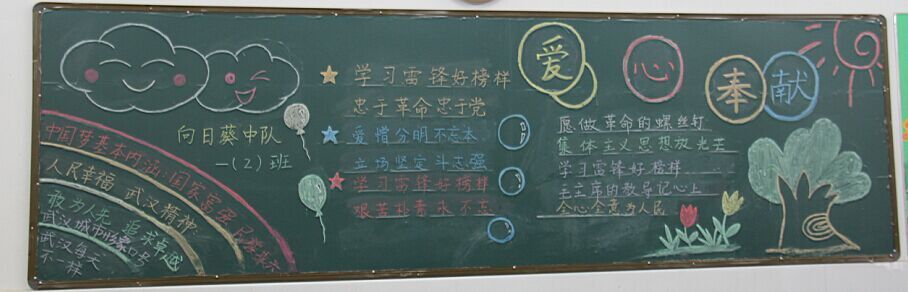 爱心奉献
向日葵中队
一(2)班
学习雷锋好榜样
忠于革命忠于党
爱憎分明不忘本
立场坚定斗志强
学习雷锋好榜样
艰苦朴素永不忘
愿做革命的螺丝钉
集体主义思想放光芒
学习雷锋好榜样
毛主席的教导记心上
全心全意为人民
中国梦基本内涵:国家富强 民族振兴
人民幸福 武汉精神
敢为人先 追求卓越
武汉城市口号
武汉每天
不一样